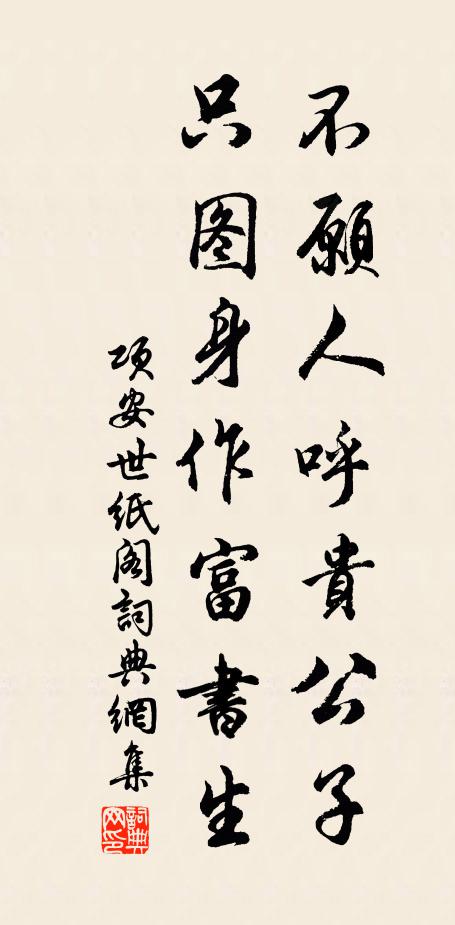 不願人呼貴公子
只图身作富書生
项安世纸阁詞典網集
詞典網印